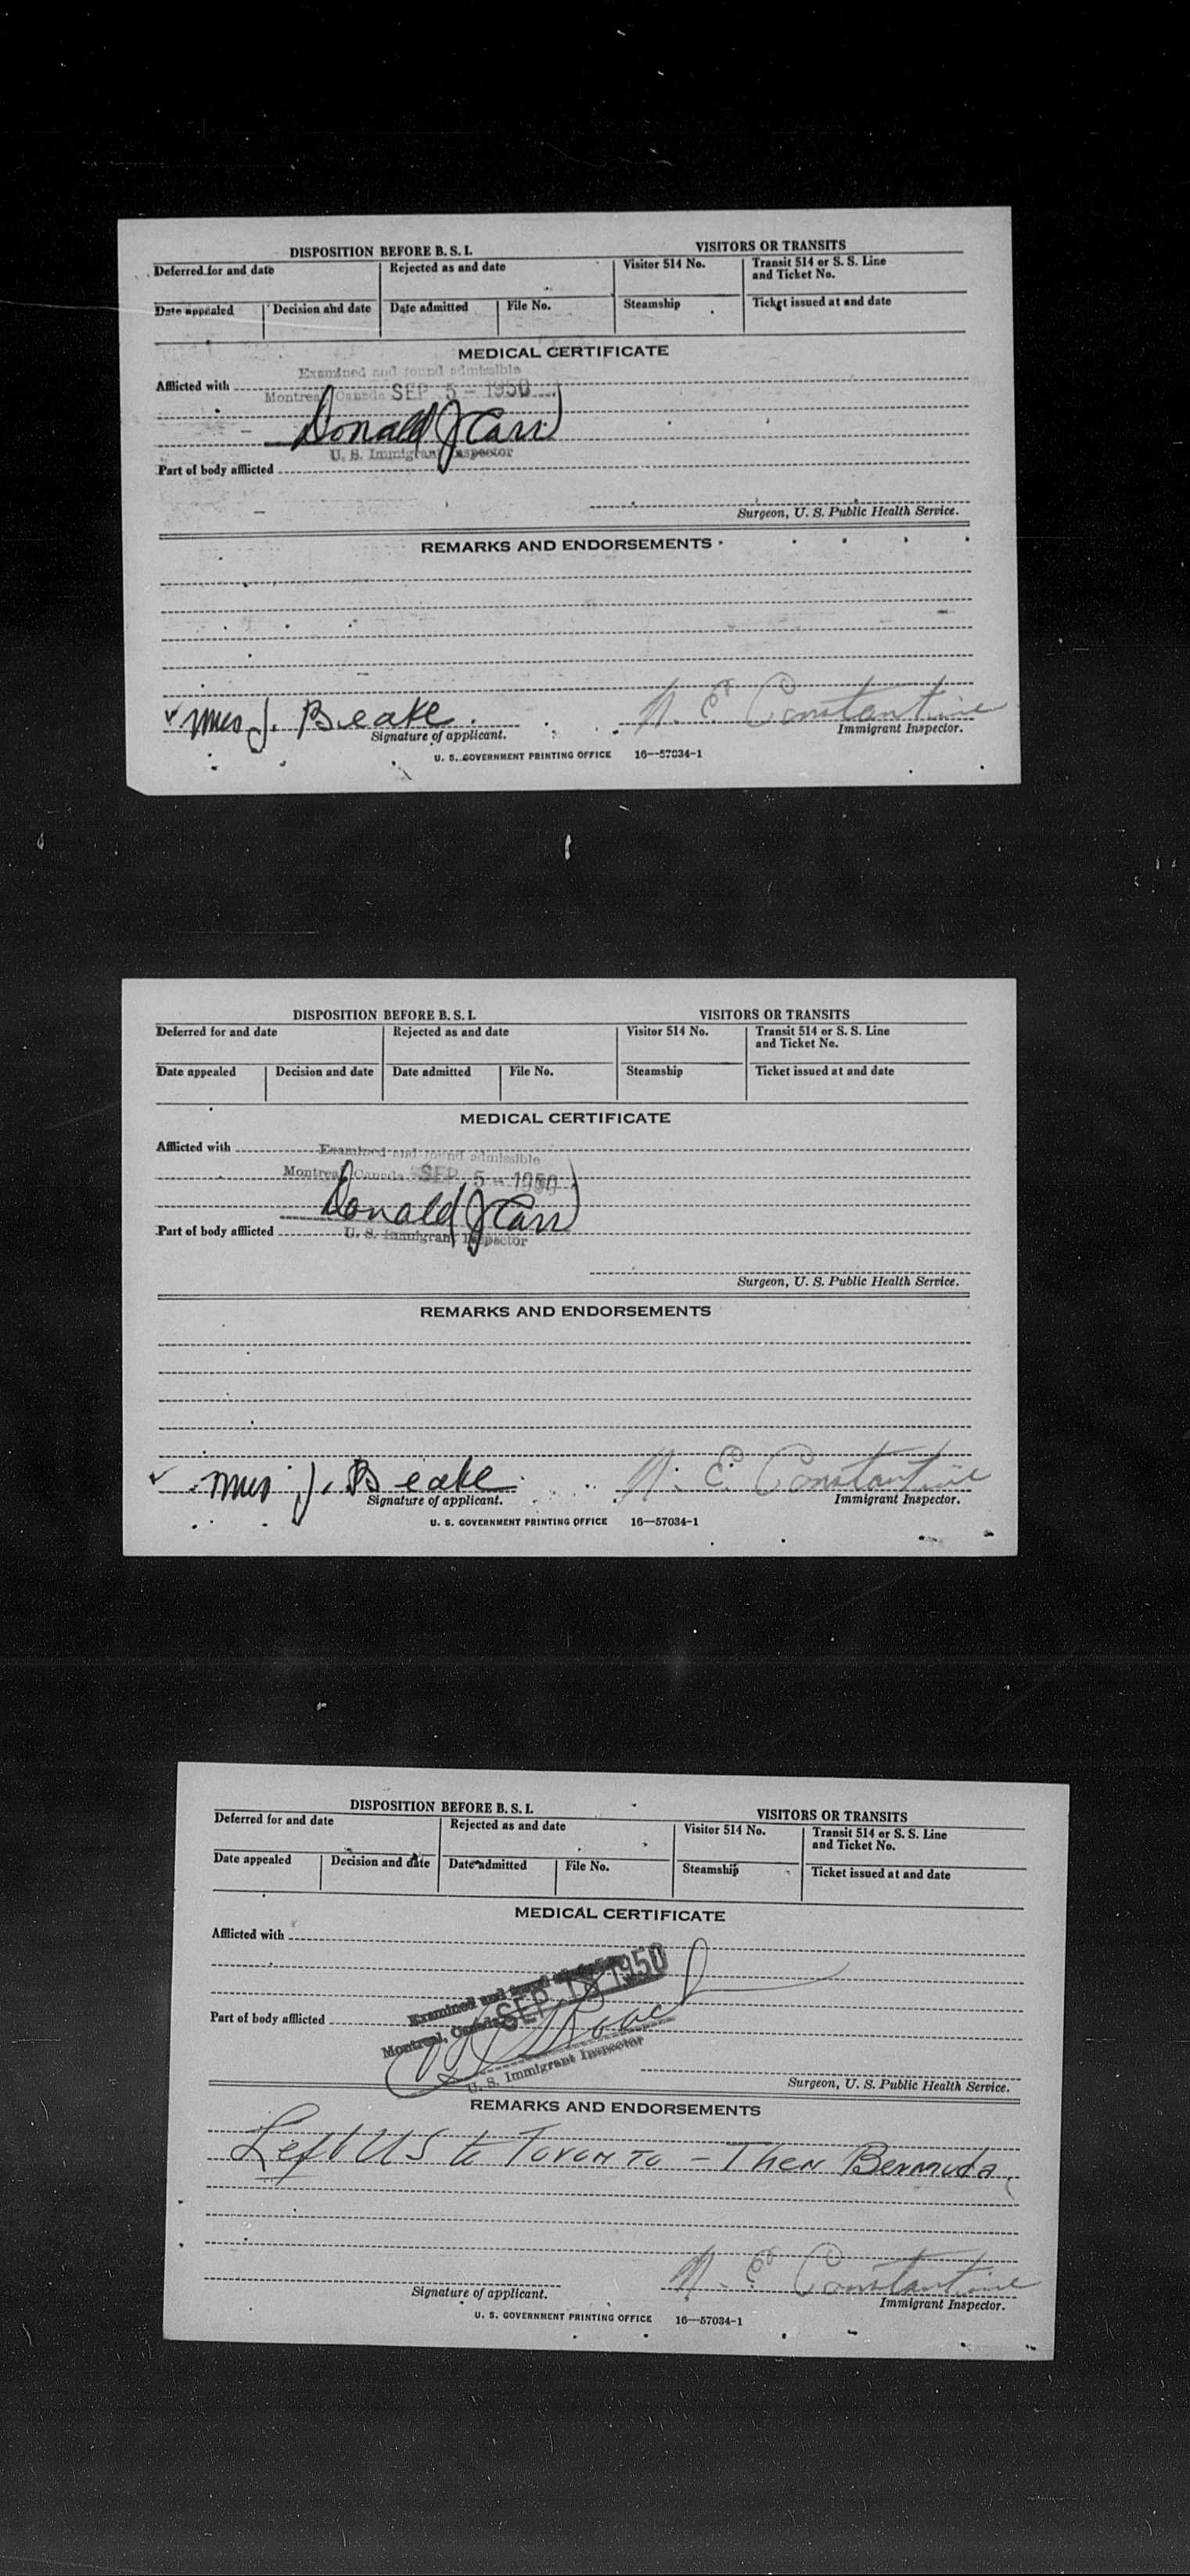 DISPOSITION BEFORE B. S. I. VISITORS OR TRANSITS
Deferred for and date Rejected as and date Visitor 514 No. Transit 514 or S. S. Line and Ticket No.
Date appealed Decision and date Date admitted File No. Steamship Ticket issued at and date
MEDICAL CERTIFICATE
Examined and found admissible
Afflicted with
Montreal, Canada SEP 5 - 1950
Donald J Carr
U. S. Immigrant Inspector
Part of body afflicted
Surgeon, U. S. Public Health Service.
REMARKS AND ENDORSEMENTS
Mrs J. Beake. N. E. Constantine
Signature of applicant. Immigrant Inspector.
U. S. GOVERNMENT PRINTING OFFICE 16—57034-1
DISPOSITION BEFORE B. S. I. VISITORS OR TRANSITS
Deferred for and date Rejected as and date Visitor 514 No. Transit 514 or S. S. Line and Ticket No.
Date appealed Decision and date Date admitted File No. Steamship Ticket issued at and date
MEDICAL CERTIFICATE
Afflicted with
Examined and found admissible
Montreal, Canada SEP 5 - 1950
Donald J Carr
Part of body afflicted
U. S. Immigrant Inspector
Surgeon, U. S. Public Health Service.
REMARKS AND ENDORSEMENTS
Mrs J. Beake. N. E. Constantine
Signature of applicant. Immigrant Inspector.
U. S. GOVERNMENT PRINTING OFFICE 16—57034-1
DISPOSITION BEFORE B. S. I. VISITORS OR TRANSITS
Deferred for and date Rejected as and date Visitor 514 No. Transit 514 or S. S. Line and Ticket No.
Date appealed Decision and date Date admitted File No. Steamship Ticket issued at and date
MEDICAL CERTIFICATE
Afflicted with
Examined and found
Montreal, Canada SEP 1950
Part of body afflicted
U. S. Immigrant Inspector
Surgeon, U. S. Public Health Service.
REMARKS AND ENDORSEMENTS
Left US to Toronto - Then Bermuda
N. E. Constantine
Signature of applicant. Immigrant Inspector.
U. S. GOVERNMENT PRINTING OFFICE 16—57034-1